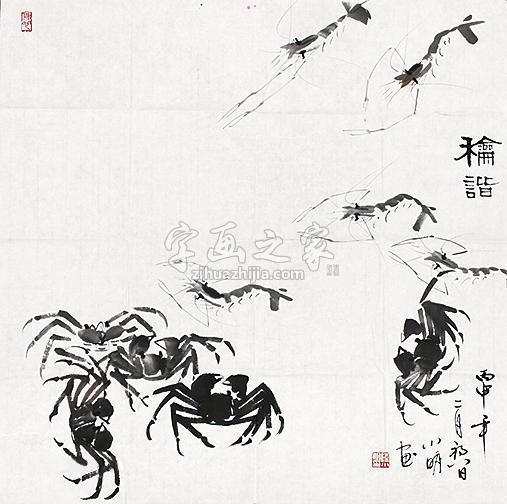 龢諧
字画之家
zihuazhijia.com
丙申年
二月初八日
小明
画